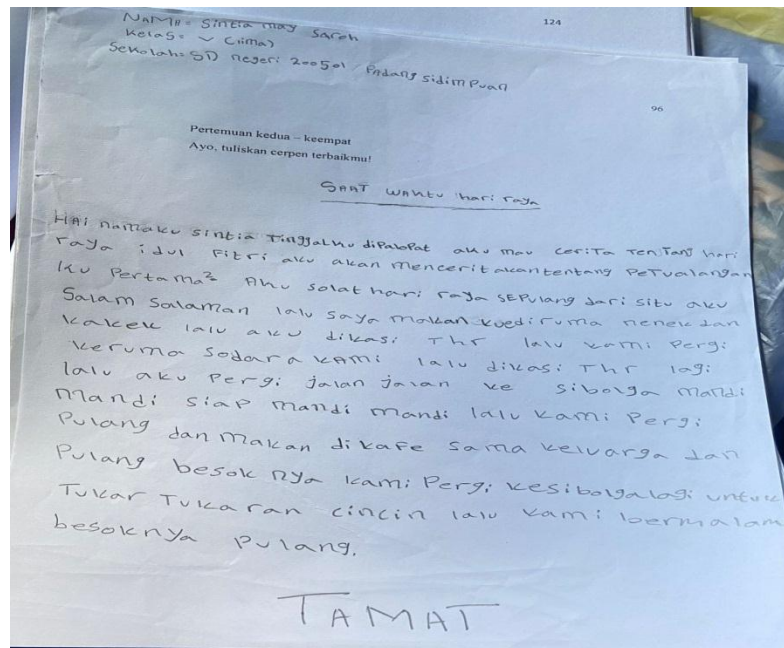 124
NAMA= Sintia may Saroh
Kelas= V (lima)
Sekolah= SD negeri 200501 Padang sidimpuan
96
Pertemuan kedua – keempat
Ayo, tuliskan cerpen terbaikmu!
SAAT WAKTU hari raya
HAi namaku sintia Tinggalku diPaloPat aku mau ceriTa TenTang hari
raya idul Fitri aku akan menceritakan tentang PeTualangan
ku Pertama² Aku solat hari raya SEPulang dari situ aku
Salam Salaman lalu saya makan kue diruma nenek dan
kakek lalu aku dikasi Thr lalu kami Pergi
keruma sodara kami lalu dikasi Thr lagi
lalu aku Pergi jalan jalan ke sibolga mandi
mandi siap mandi mandi lalu kami Pergi
Pulang dan makan dikafe sama keluarga dan
Pulang besok nya kami Pergi kesibolga lagi untuk
Tukar Tukaran cincin lalu kami bermalam
besoknya Pulang.
TAMAT